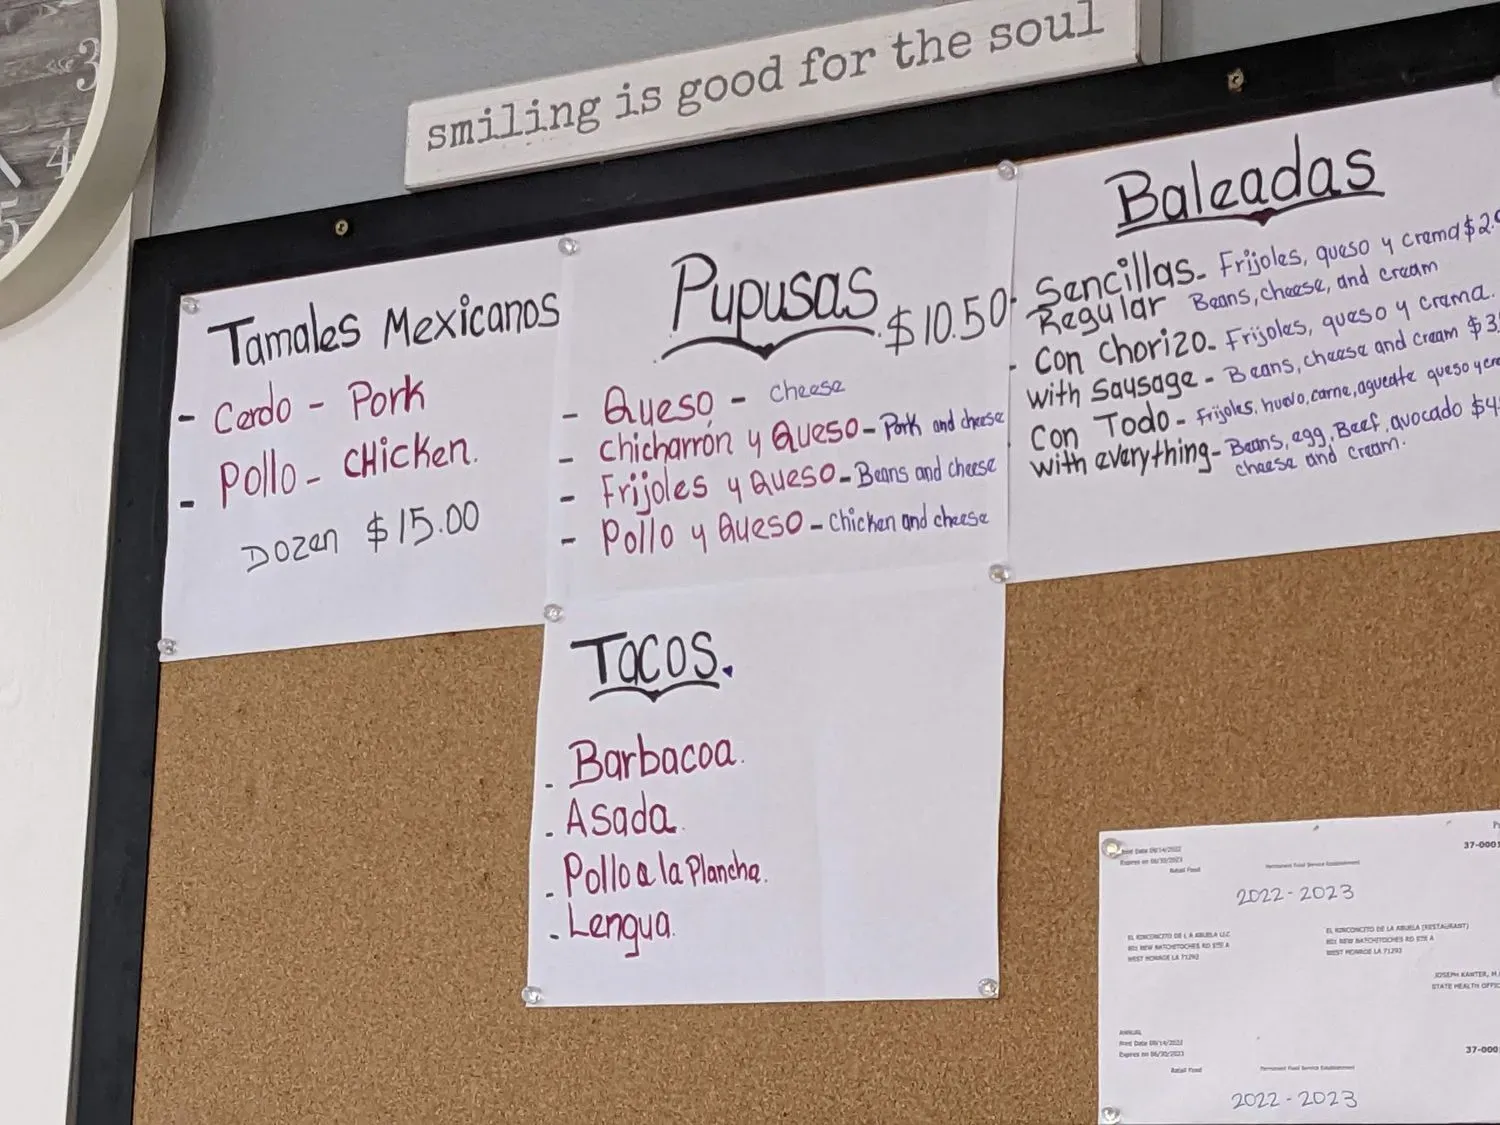 3
4
5
smiling is good for the soul
Tamales Mexicanos
- Cerdo - Pork
- Pollo - CHicken.
Dozen $15.00
Pupusas $10.50
- Queso - cheese
- Chicharrón y Queso - Pork and cheese
- Frijoles y Queso - Beans and cheese
- Pollo y Queso - Chicken and cheese
Baleadas
- Sencillas - Frijoles, queso y crema $2.
Regular Beans, cheese, and cream
- Con Chorizo - Frijoles, queso y crema.
with Sausage - Beans, cheese and cream $3
- Con Todo - Frijoles, huevo, carne, aguacate queso y cre
with everything - Beans, egg, Beef, avocado $4
cheese and cream.
Tacos.
- Barbacoa.
- Asada.
- Pollo a la Plancha.
- Lengua.
Print Date 09/14/2022
Expires on 06/30/2023
Retail Food
Permanent Food Service Establishment
37-000
2022-2023
EL RINCONCITO DE LA ABUELA LLC
801 NEW NATCHITOCHES RD STE A
WEST MONROE LA 71292
EL RINCONCITO DE LA ABUELA (RESTAURANT)
801 NEW NATCHITOCHES RD STE A
WEST MONROE LA 71292
JOSEPH KANTER, M.
STATE HEALTH OFFIC
ANNUAL
Print Date 09/14/2022
Expires on 06/30/2023
Retail Food
Permanent Food Service Establishment
37-000
2022-2023